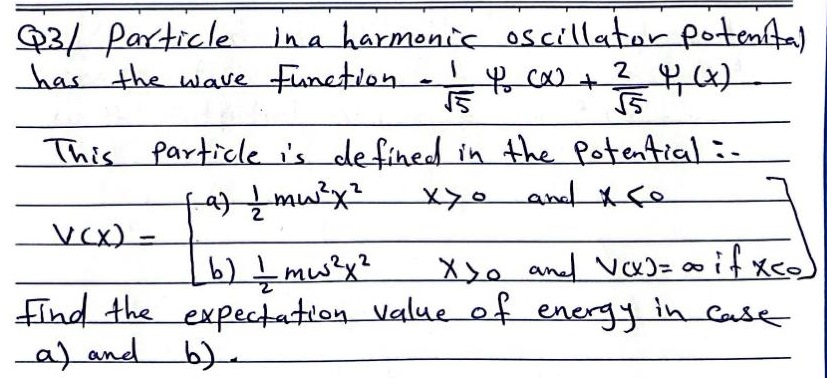 Q3/ Particle in a harmonic oscillator potential
has the wave function - 1/√5 Ψ₀(x) + 2/√5 Ψ₁(x).
This particle is defined in the potential :-
a) 1/2 mω²x² x>0 and x<0
V(x) =
b) 1/2 mω²x² x>0 and V(x)=∞ if x<0
Find the expectation value of energy in case
a) and b).